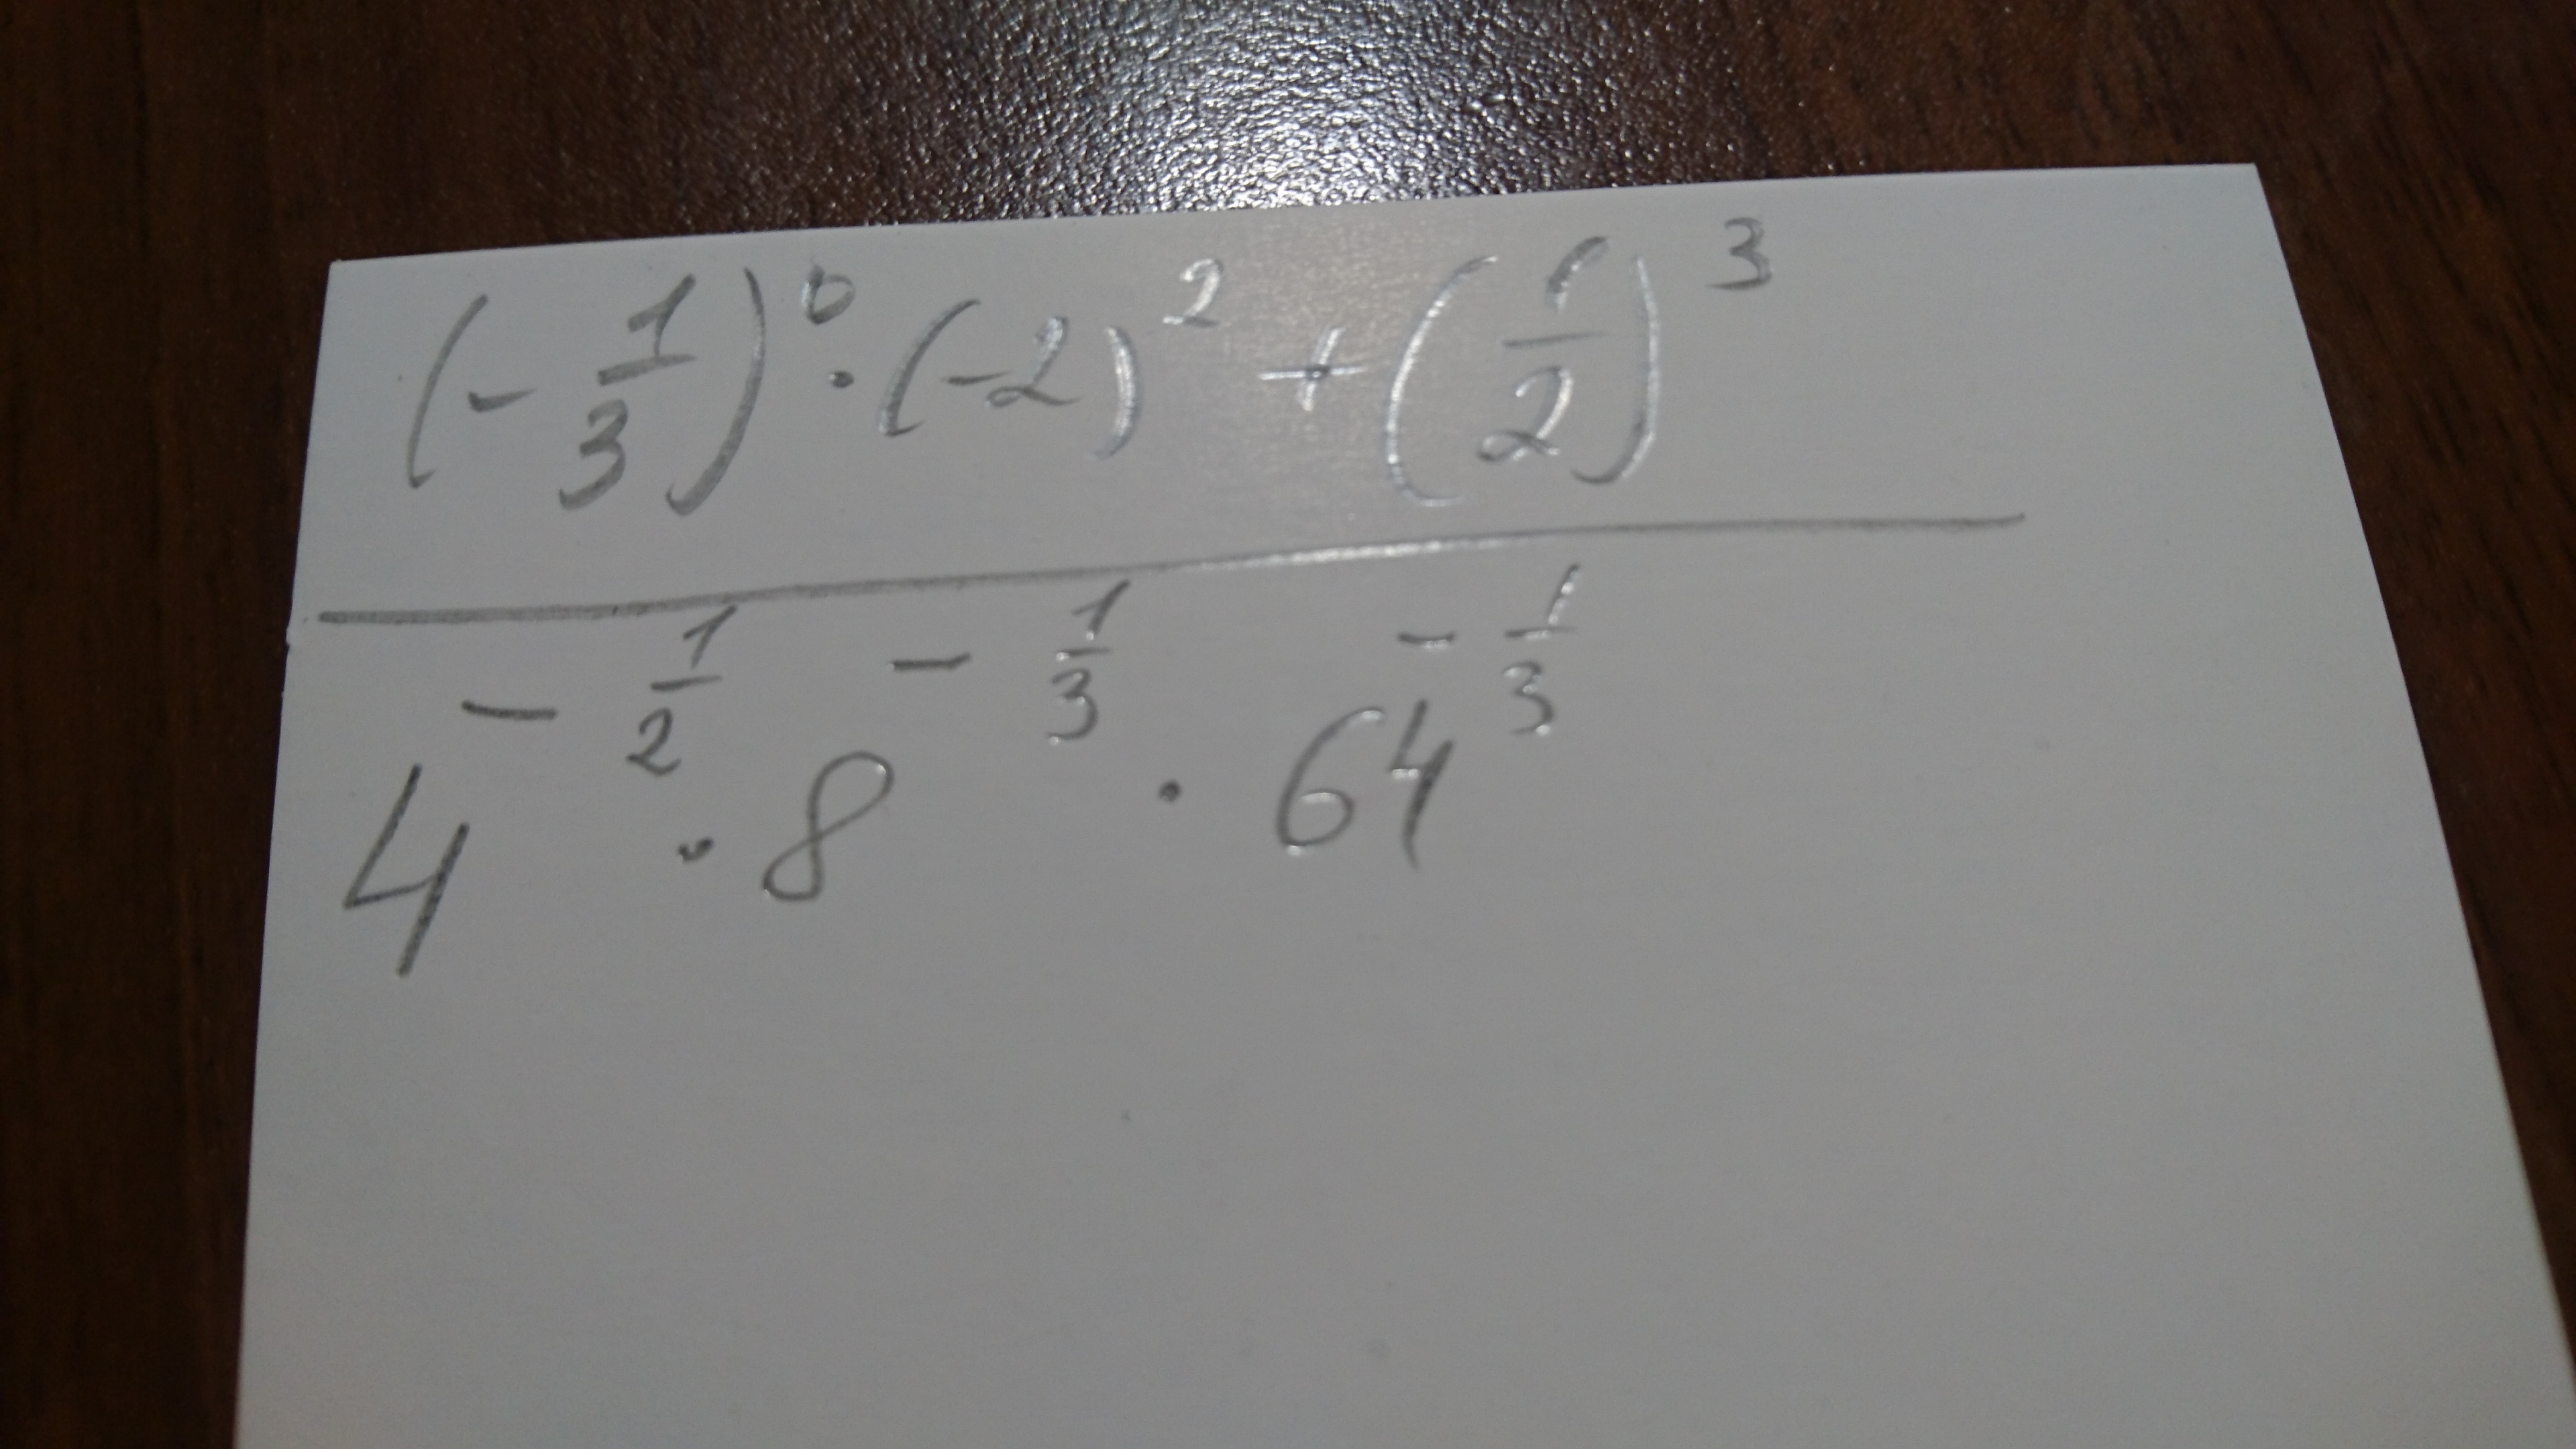 (-1/3)^0 · (-2)^2 + (1/2)^3
4^(-1/2) · 8^(-1/3) · 64^(-1/3)